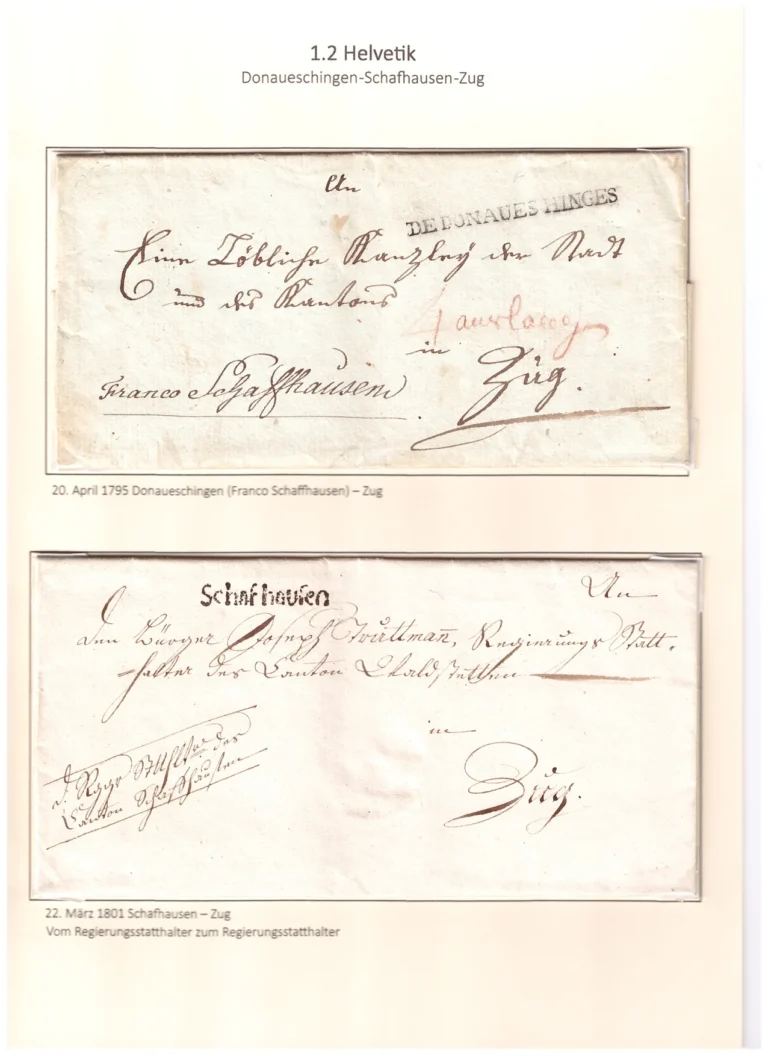 1.2 Helvetik
Donaueschingen-Schafhausen-Zug
An
DE DONAUES HINGES
Eine Löbliche Kanzley der Stadt
und des Kantons
4 auslag
in
Franco Schaffhausen
Zug.
20. April 1795 Donaueschingen (Franco Schaffhausen) – Zug
Schafhausen
An
den Bürger Joseph Trüttman̄, Regierungs Statt-
-halter des Canton Waldstetten
in
Zug.
d. Rggs Stthltr des
Canton Schaffhausen
22. März 1801 Schafhausen – Zug
Vom Regierungsstatthalter zum Regierungsstatthalter